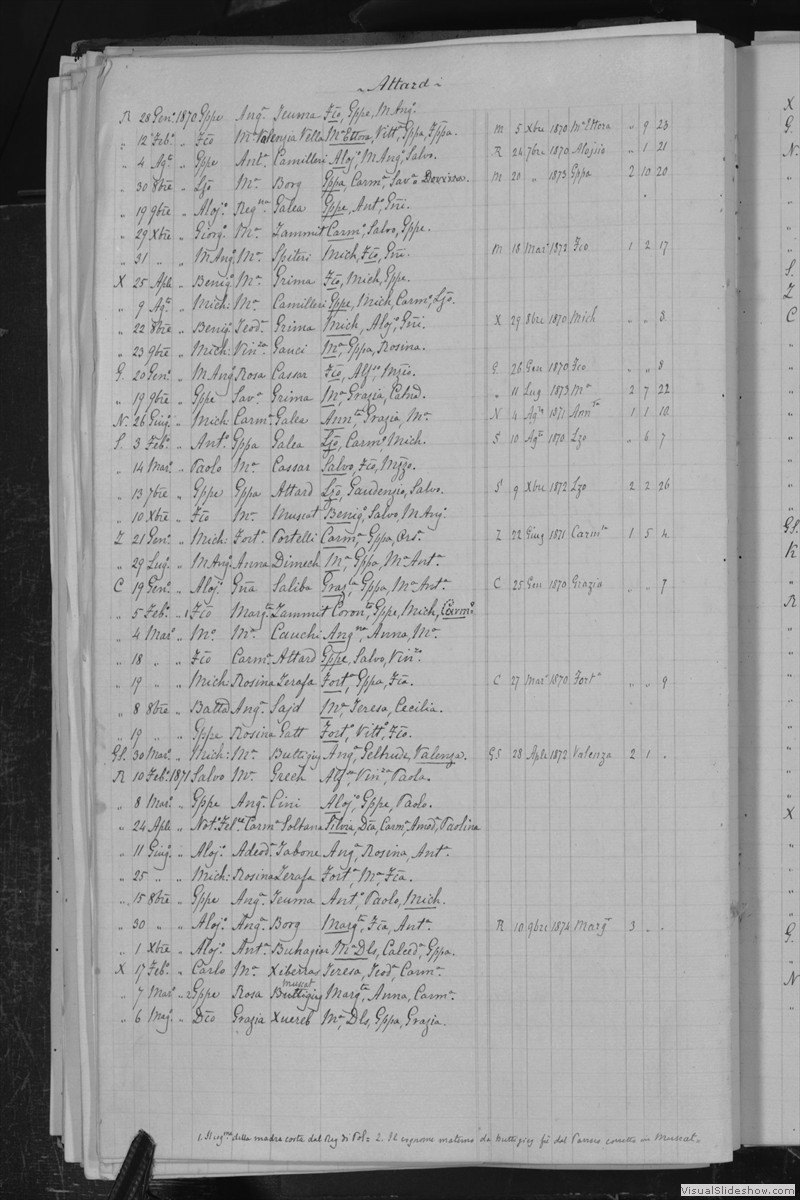 Attard
R 28 Genº 1870 Gppe Angª Teuma Fco, Gppe, M Angº
„ 12 Febº „ Fco Mª Valenzia Vella Mª Ettora, Vittª, Gppa, Fppa. M 5 Xbre 1870 Mª Ettora „ 9 23
„ 4 Agº „ Gppe Antª Camilleri Alojª, M Angª, Salvº. R 24 7bre 1870 Alojsio „ 1 21
„ 30 8bre „ Ljo Mª Borg Gppa, Carmª, Savª M 20 „ 1873 Gppa 2 10 20
„ 19 9bre „ Alojº Regna Galea Gppe, Antº, Gni.
„ 29 Xbre „ Giorgº Mª Zammit Carmº, Salvo, Gppe.
„ 31 „ „ M Angº Mª Spiteri Mich, Fco, Gni. M 18 Marº 1872 Fco 1 2 17
X 25 Aple „ Benigº Mª Grima Fco, Mich, Gppe.
„ 9 Agº „ Mich: Mª Camilleri Gppe, Mich, Carmº, Ljo.
„ 22 8bre „ Benigº Teodª Grima Mich, Alojº, Gni. X 29 8bre 1870 Mich „ „ 8
„ 23 9bre „ Mich: Vinza Gauci Mª, Gppa, Rosina.
G 20 Genº „ M Angº Rosa Cassar Fco, Alfso, Mzio. G 26 Gen 1870 Fco „ „ 8
„ 19 9bre „ Gppe Savª Grima Mª, Grazia, Catnª. „ 11 Lug 1873 Mª 2 7 22
N 26 Giugº „ Mich: Carmª Galea Annta, Grazia, Mª. N 4 Agto 1871 Annta 1 1 10
S 3 Febº „ Antº Gppa Galea Ljo, Carmº, Mich. S 10 Agto 1870 Lzo „ 6 7
„ 14 Marº „ Paolo Mª Cassar Salvo, Fco, Mzzo.
„ 13 7bre „ Gppe Gppa Attard Ljo, Gaudenzio, Salvo. S 9 Xbre 1872 Lzo 2 2 26
„ 10 Xbre „ Fco Mª Muscat Benigº, Salvo, M Angº.
Z 21 Genº „ Mich: Fortª Portelli Carmª, Gppa, Ors. Z 22 Giug 1871 Carmla 1 5 4
„ 29 Lugº „ M Angº Anna Dimech Mª, Gppa, Mª Antª.
C 19 Genº „ Alojº Gna Saliba Grazia, Gppa, Mª Antª. C 25 Gen 1870 Grazia „ „ 7
„ 5 Febº „ 1 Fco Margta Zammit Coronto, Gppe, Mich, Carmº
„ 4 Marº „ Mº Mª Cauchi Angna, Anna, Mª.
„ 18 „ „ Fco Carmª Attard Gppe, Salvo, Vinzo.
„ 19 „ „ Mich: Rosina Zerafa Fortª, Gppa, Fca. C 27 Marº 1870 Fortª „ „ 9
„ 8 8bre „ Batta Angª Sajd Mª, Teresa, Cecilia.
„ 19 „ „ Gppe Rosina Gatt Fortº, Vittº, Fco.
GS 30 Marº „ Mich: Mª Buttigieg Angª, Geltrude, Valenza. GS 28 Aple 1872 Valenza 2 1 .
R 10 Febº 1871 Salvo Mª Grech Alfsa, Vinza, Paola.
„ 8 Marº „ Gppe Angª Cini Alojº, Gppe, Paolo.
„ 24 Aple „ Notº Felce Carmª Soltana Silvia, Dca, Carmª, Amodª, Paolina
„ 11 Giugº „ Alojº Adeodª Tabone Angª, Rosina, Antª.
„ 25 „ „ Mich: Rosina Zerafa Fortª, Mª, Fca.
„ 15 8bre „ Gppe Angª Teuma Antº, Paolo, Mich.
„ 30 „ „ Alojº Angª Borg Margta, Fca, Antª. R 10 9bre 1874 Margt 3 „ .
„ 1 Xbre „ Alojº Antª Buhagiar Mª Dls, Calcedª, Gppa.
X 17 Febº „ Carlo Mª Xiberras Teresa, Teodª, Carmª.
muscat
„ 7 Marº „ 2 Gppe Rosa Buttigieg Margta, Anna, Carmª.
„ 6 Magº „ Dco Grazia Xuereb Mª, Dls, Gppa, Grazia.
1. Il cogme della madre coste dal Reg di Pol= 2. Il cognome materno da Buttigieg fù dal Parroco corretto in Muscat.
VisualSlideshow.com